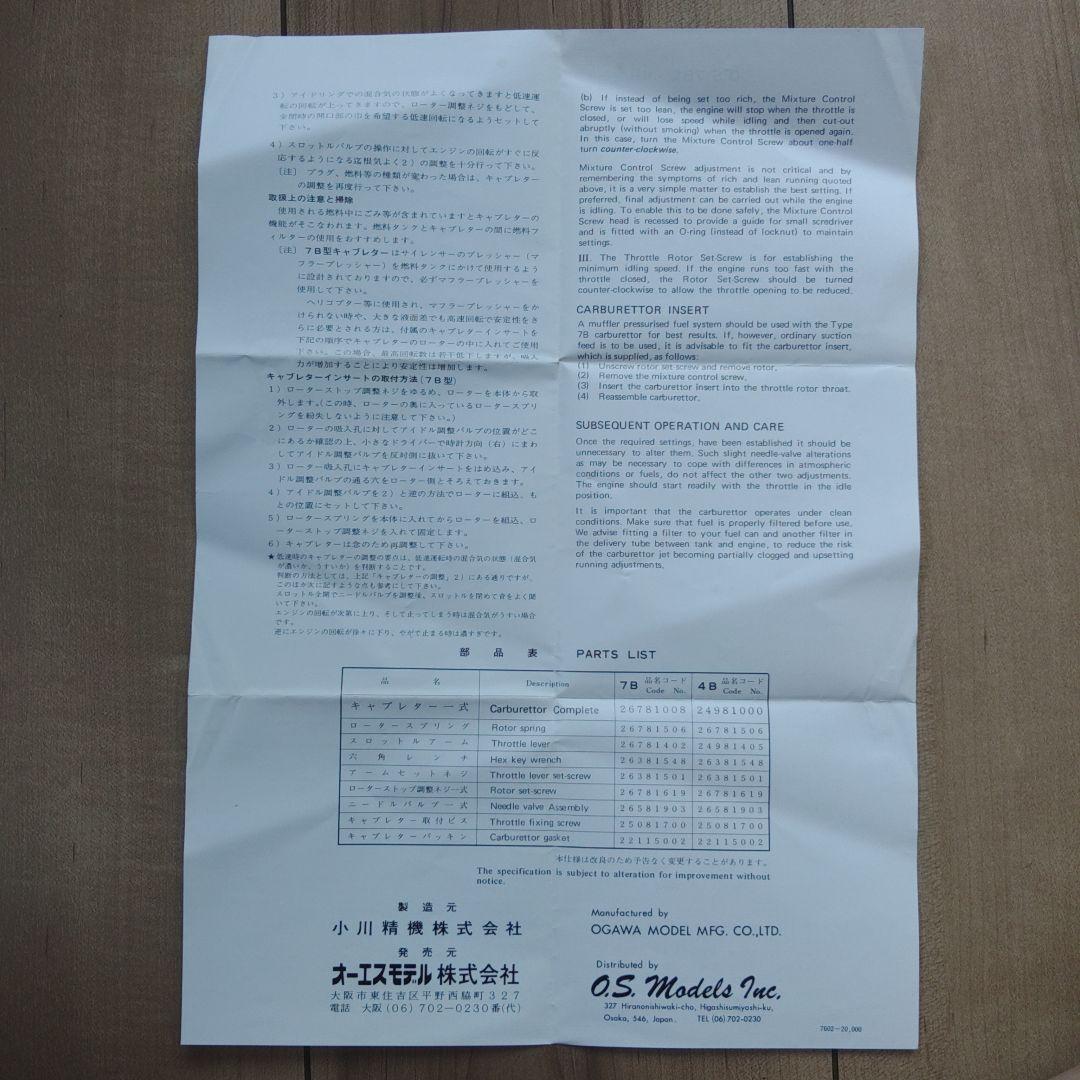 3）アイドリングでの混合気の状態がよくなってきますと低速運
転の回転が上ってきますので、ローター調整ネジをもどして、
全閉時の開口部の巾を希望する低速回転になるようセットして
下さい。
4）スロットルバルブの操作に対してエンジンの回転がすぐに反
応するようになる迄根気よく2）の調整を十分行って下さい。
〔注〕 プラグ、燃料等の種類が変わった場合は、キャブレター
の調整を再度行って下さい。
取扱上の注意と掃除
使用される燃料中にごみ等が含まれていますとキャブレターの
機能がそこなわれます。燃料タンクとキャブレターの間に燃料フ
ィルターの使用をおすすめします。
〔注〕 7B型キャブレターはサイレンサーのプレッシャー（マ
フラープレッシャー）を燃料タンクにかけて使用するよう
に設計されておりますので、必ずマフラープレッシャーを
使用して下さい。
ヘリコプター等に使用され、マフラープレッシャーをか
けられない時や、大きな液面差でも高速回転で安定性をさ
らに必要とされる方は、付属のキャブレターインサートを
下記の順序でキャブレターのローターの中に入れてご使用
下さい。この場合、最高回転数は若干低下しますが、吸入
力が増加することにより安定性は増加します。
キャブレターインサートの取付方法（7B型）
1）ローターストップ調整ネジをゆるめ、ローターを本体から取
外します。（この時、ローターの奥に入っているロータースプリ
ングを紛失しないように注意して下さい。）
2）ローターの吸入孔に対してアイドル調整バルブの位置がどこ
にあるか確認の上、小さなドライバーで時計方向（右）にまわ
してアイドル調整バルブを反対側に抜いて下さい。
3）ローター吸入孔にキャブレターインサートをはめ込み、アイ
ドル調整バルブの通る穴をローター側とそろえておきます。
4）アイドル調整バルブを2）と逆の方法でローターに組込、も
との位置にセットして下さい。
5）ロータースプリングを本体に入れてからローターを組込、ロ
ーターストップ調整ネジを入れて固定します。
6）キャブレターは念のため再調整して下さい。
★低速時のキャブレターの調整の要点は、低速運転時の混合気の状態（混合気
が濃いか、うすいか）を判断することです。
判断の方法としては、上記「キャブレターの調整」2）にある通りですが、
このほか次に記すような点も参考にして下さい。
スロットル全開でニードルバルブを調整後、スロットルを閉めて音をよく聞
いて下さい。
エンジンの回転が次第に上り、そして止ってしまう時は混合気がうすい場合
です。
逆にエンジンの回転が徐々に下り、やがて止まる時は濃すぎです。
(b) If instead of being set too rich, the Mixture Control
Screw is set too lean, the engine will stop when the throttle is
closed, or will lose speed while idling and then cut-out
abruptly (without smoking) when the throttle is opened again.
In this case, turn the Mixture Control Screw about one-half
turn counter-clockwise.
Mixture Control Screw adjustment is not critical and by
remembering the symptoms of rich and lean running quoted
above, it is a very simple matter to establish the best setting. If
preferred, final adjustment can be carried out while the engine
is idling. To enable this to be done safely, the Mixture Control
Screw head is recessed to provide a guide for small scredriver
and is fitted with an O-ring (instead of locknut) to maintain
settings.
III. The Throttle Rotor Set-Screw is for establishing the
minimum idling speed. If the engine runs too fast with the
throttle closed, the Rotor Set-Screw should be turned
counter-clockwise to allow the throttle opening to be reduced.
CARBURETTOR INSERT
A muffler pressurised fuel system should be used with the Type
7B carburettor for best results. If, however, ordinary suction
feed is to be used, it is advisable to fit the carburettor insert,
which is supplied, as follows:
(1) Unscrew rotor set screw and remove rotor.
(2) Remove the mixture control screw.
(3) Insert the carburettor insert into the throttle rotor throat.
(4) Reassemble carburettor.
SUBSEQUENT OPERATION AND CARE
Once the required settings, have been established it should be
unnecessary to alter them. Such slight needle-valve alterations
as may be necessary to cope with differences in atmospheric
conditions or fuels, do not affect the other two adjustments.
The engine should start readily with the throttle in the idle
position.
It is important that the carburettor operates under clean
conditions. Make sure that fuel is properly filtered before use.
We advise fitting a filter to your fuel can and another filter in
the delivery tube between tank and engine, to reduce the risk
of the carburettor jet becoming partially clogged and upsetting
running adjustments.
部品表 PARTS LIST
品名 Description 7B 品名コード Code No. 4B 品名コード Code No.
キャブレター一式 Carburettor Complete 26781008 24981000
ロータースプリング Rotor spring 26781506 26781506
スロットルアーム Throttle lever 26781402 24981405
六角レンチ Hex key wrench 26381548 26381548
アームセットネジ Throttle lever set-screw 26381501 26381501
ローターストップ調整ネジ一式 Rotor set-screw 26781619 26781619
ニードルバルブ一式 Needle valve Assembly 26581903 26581903
キャブレター取付ビス Throttle fixing screw 25081700 25081700
キャブレターパッキン Carburettor gasket 22115002 22115002
本仕様は改良のため予告なく変更することがあります。
The specification is subject to alteration for improvement without
notice.
製造元
小川精機株式会社
発売元
オーエスモデル株式会社
大阪市東住吉区平野西脇町327
電話 大阪(06)702-0230番(代)
Manufactured by
OGAWA MODEL MFG. CO.,LTD.
Distributed by
O.S. Models Inc.
327 Hiranonishiwaki-cho, Higashisumiyoshi-ku,
Osaka, 546, Japan. TEL (06) 702-0230
7602-20,000